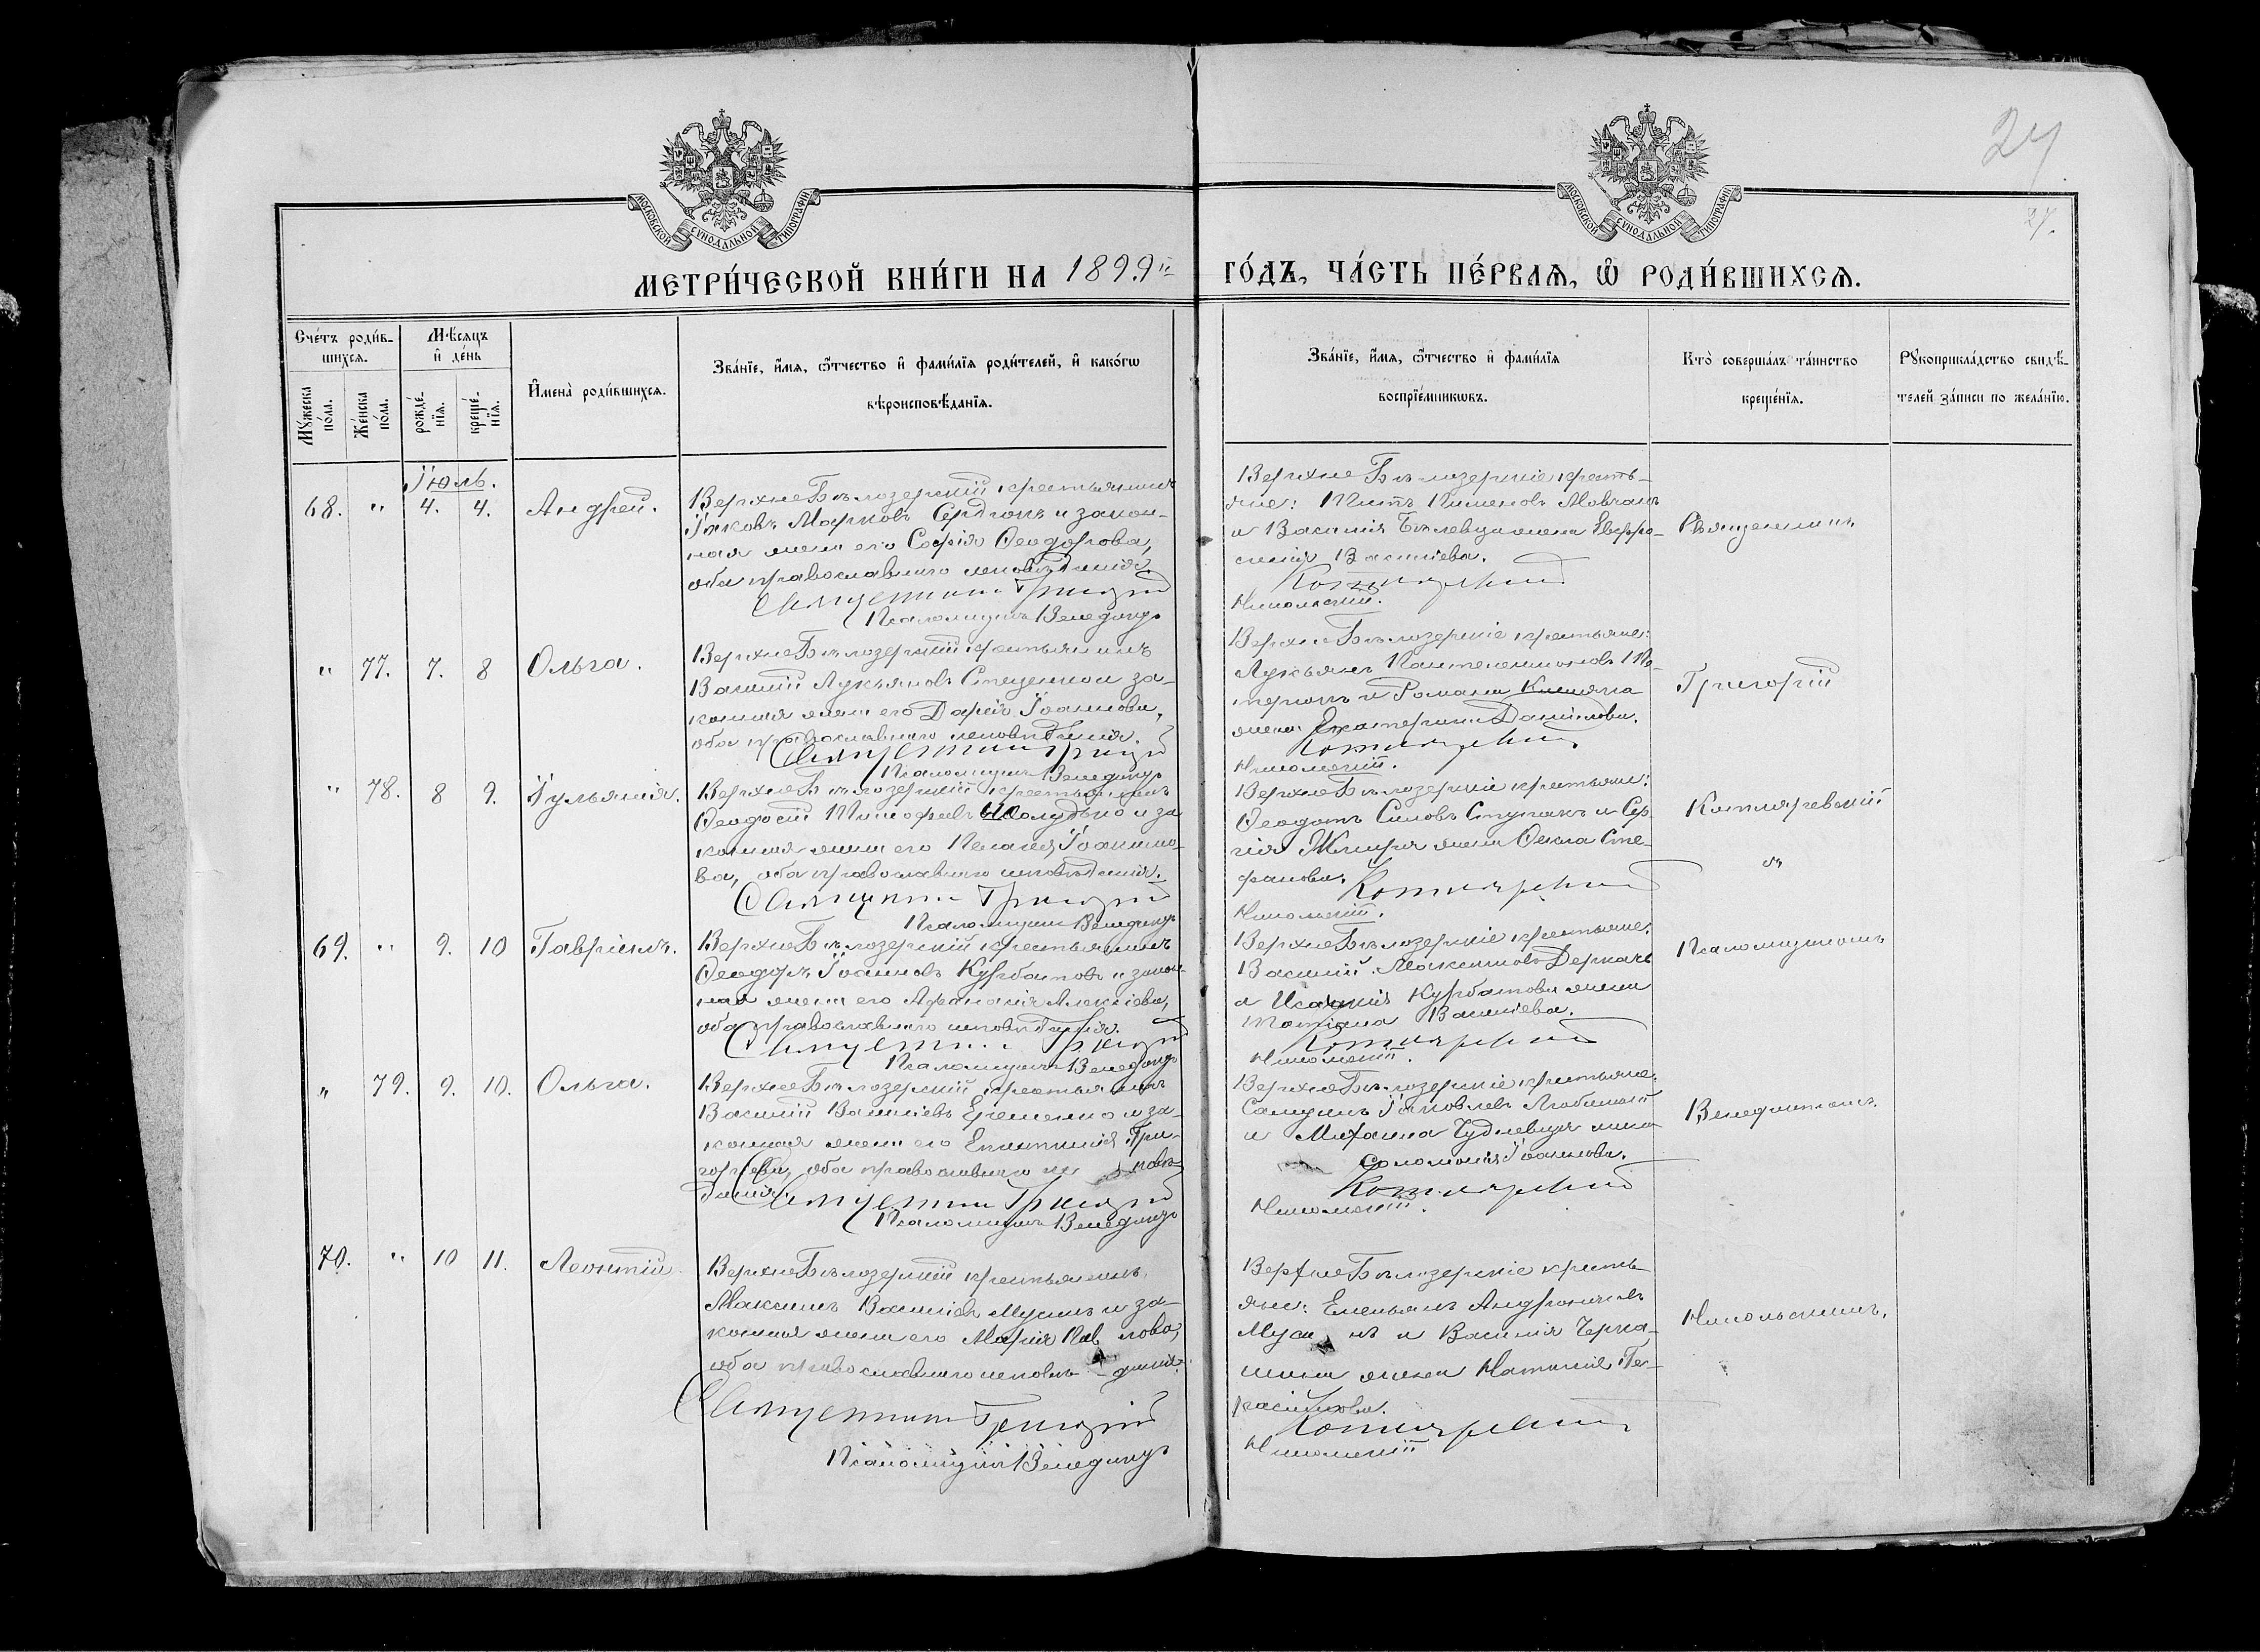 24
27.
МОСКОВСКОЙ СѴНОДАЛЬНОЙ ТИПОГРАФІИ
МОСКОВСКОЙ СѴНОДАЛЬНОЙ ТИПОГРАФІИ
МЕТРИ́ЧЕСКОЙ КНИ́ГИ НА 1899й ГО́ДЪ, ЧА́СТЬ ПЕ́РВАѦ, Ѽ РОДИ́ВШИХСѦ.
Сче́тъ роди́в-
шихсѧ.
Мꙋ́жеска
по́ла.
Же́нска
по́ла.
Мѣ́сѧцъ
и҆ де́нь
рожде́-
нїѧ.
креще́-
нїѧ.
И҆мена̀ роди́вшихсѧ.
Зва́нїе, и҆́мѧ, ѻ҆́тчество и҆ фами́лїѧ роди́телей, и҆ како́гѡ
вѣроисповѣ́данїѧ.
Зва́нїе, и҆́мѧ, ѻ҆́тчество и҆ фами́лїѧ
воспрїе́мникѡвъ.
Кто̀ соверша́лъ та́инство
креще́нїѧ.
Рꙋкоприкла́дство свидѣ́-
телей за́писи по жела́нїю.
Іюль.
68. " 4. 4. Андрей.
ВерхнеБѣлозерскій крестьянинъ
Іаковъ Марковъ Сердюкъ и закон-
ная жена его Софія Ѳеодорова,
оба православнаго исповѣданія.
Священникъ Григорій
Псаломщикъ Венедиктъ
ВерхнеБѣлозерскіе кресть-
яне: Титъ Пименовъ Мовчанъ
и Василія жена Евфро-
синія Василіева.
Котляревскій
Никольскій.
Священникъ
" 77. 7. 8 Ольга.
ВерхнеБѣлозерскій крестьянинъ
Василій Лукьяновъ Стеценко и за-
конная жена его Дарія Іоаннова,
оба православнаго исповѣданія.
Священникъ Григорій
Псаломщикъ Венедиктъ
ВерхнеБѣлозерскіе крестьяне:
Лукьянъ Пантелеимоновъ
и Романа
жена Екатерина Даніилова.
Котляревскій
Никольскій.
Григорій
" 78. 8 9. Іульянія.
ВерхнеБѣлозерскій крестьянинъ
Ѳеодосій Тимофеевъ и за
конная жена его Пелагея Іоанно-
ва, оба православнаго исповѣданія.
Священникъ Григорій
Псаломщикъ Венедиктъ
ВерхнеБѣлозерскіе крестьяне:
Ѳеодотъ Силовъ Ступакъ и Сер-
гія жена Ѳекла Сте-
фанова.
Котляревскій
Никольскій.
Котляревскій
съ
69. " 9. 10 Гавріилъ.
ВерхнеБѣлозерскій крестьянинъ
Ѳеодоръ Іоанновъ Курбатовъ и закон-
ная жена его Афанасія Алексіева,
оба православнаго исповѣданія.
Священникъ Григорій
Псаломщикъ Венедиктъ
ВерхнеБѣлозерскіе крестьяне:
Василій Максимовъ Деркачъ
и Исаакія Курбатова жена
Татіана Василіева.
Котляревскій
Никольскій.
Псаломщикомъ
" 79. 9. 10. Ольга.
ВерхнеБѣлозерскій крестьянинъ
Василій Василіевъ Еременко и за-
конная жена его Епистимія Гри-
горіева, оба православнаго исповѣ-
данія.
Священникъ Григорій
Псаломщикъ Венедиктъ
ВерхнеБѣлозерскіе крестьяне:
Самуилъ Іаковлевъ Любимый
и Михаила жена
Соломонія Іоаннова.
Котляревскій
Никольскій.
Венедиктомъ
70. " 10 11. Леонтій
ВерхнеБѣлозерскій крестьянинъ
Максимъ Василіевъ и за-
конная жена его Марія Павлова,
оба православнаго исповѣданія.
Священникъ Григорій
Псаломщикъ Венедиктъ
ВерхнеБѣлозерскіе кресть-
яне: Емельянъ Андрониковъ
и Василія Черка-
шина жена Наталія Ге-
расимова.
Котляревскій
Никольскій
Никольскимъ.